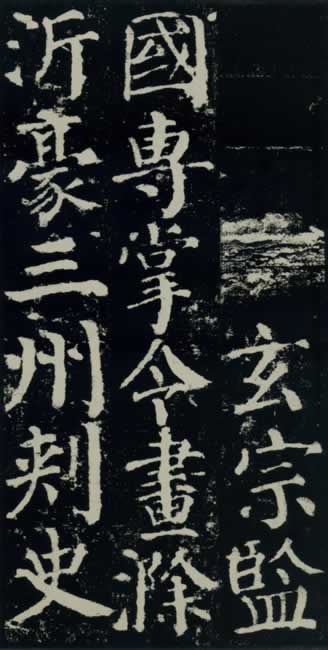 玄宗監
國專掌令畫滁
沂豪三州刺史